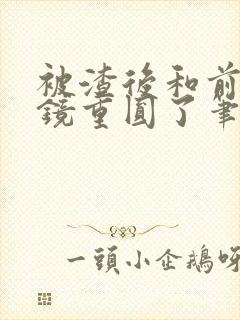 被渣後和前
鏡重圓了筆
一頭小企鵝呀